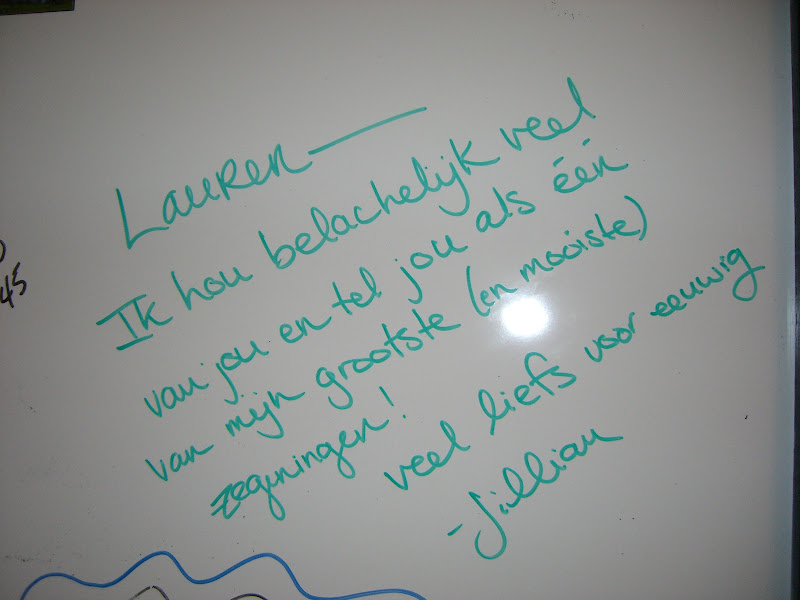 Lauren —
Ik hou belachelijk veel
van jou en tel jou als één
van mijn grootste (en mooiste)
zegeningen!
veel liefs voor eeuwig
-Jillian
45